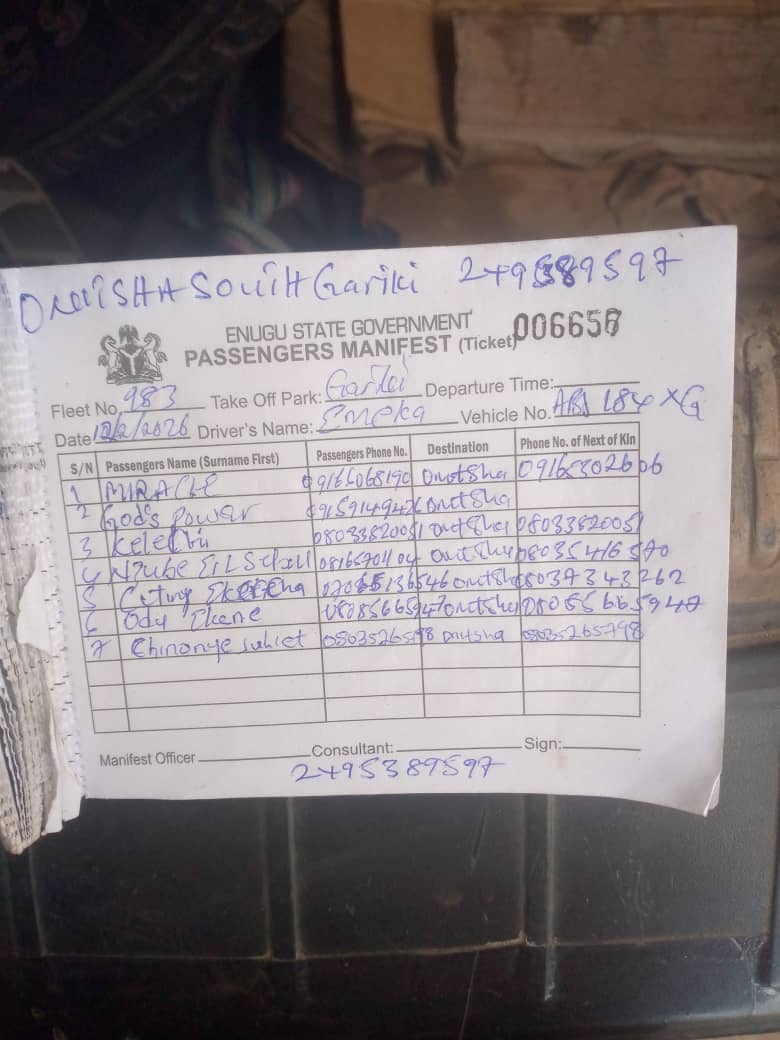 ONITSHA SOUTH Gariki 2495389597
ENUGU STATE GOVERNMENT
PASSENGERS MANIFEST (Ticket) 006658
Fleet No. 983 Take Off Park: Gariki Departure Time:
Date 12/2/2026 Driver's Name: Emeka Vehicle No. 184 XG
S/N Passengers Name (Surname First) Passengers Phone No. Destination Phone No. of Next of Kin
1 MIRACLE 09165068190 Onitsha 09165302606
2 God's Power Onitsha
3 Kelechi 08033820051 Onitsha 08033820051
4 08165701104 Onitsha 08035416570
5 Onitsha 08037343262
6 Odu 08085665947 Onitsha 08085665947
7 Chinonye 08035265798 Onitsha 08035265798
Manifest Officer Consultant: Sign:
2495389597